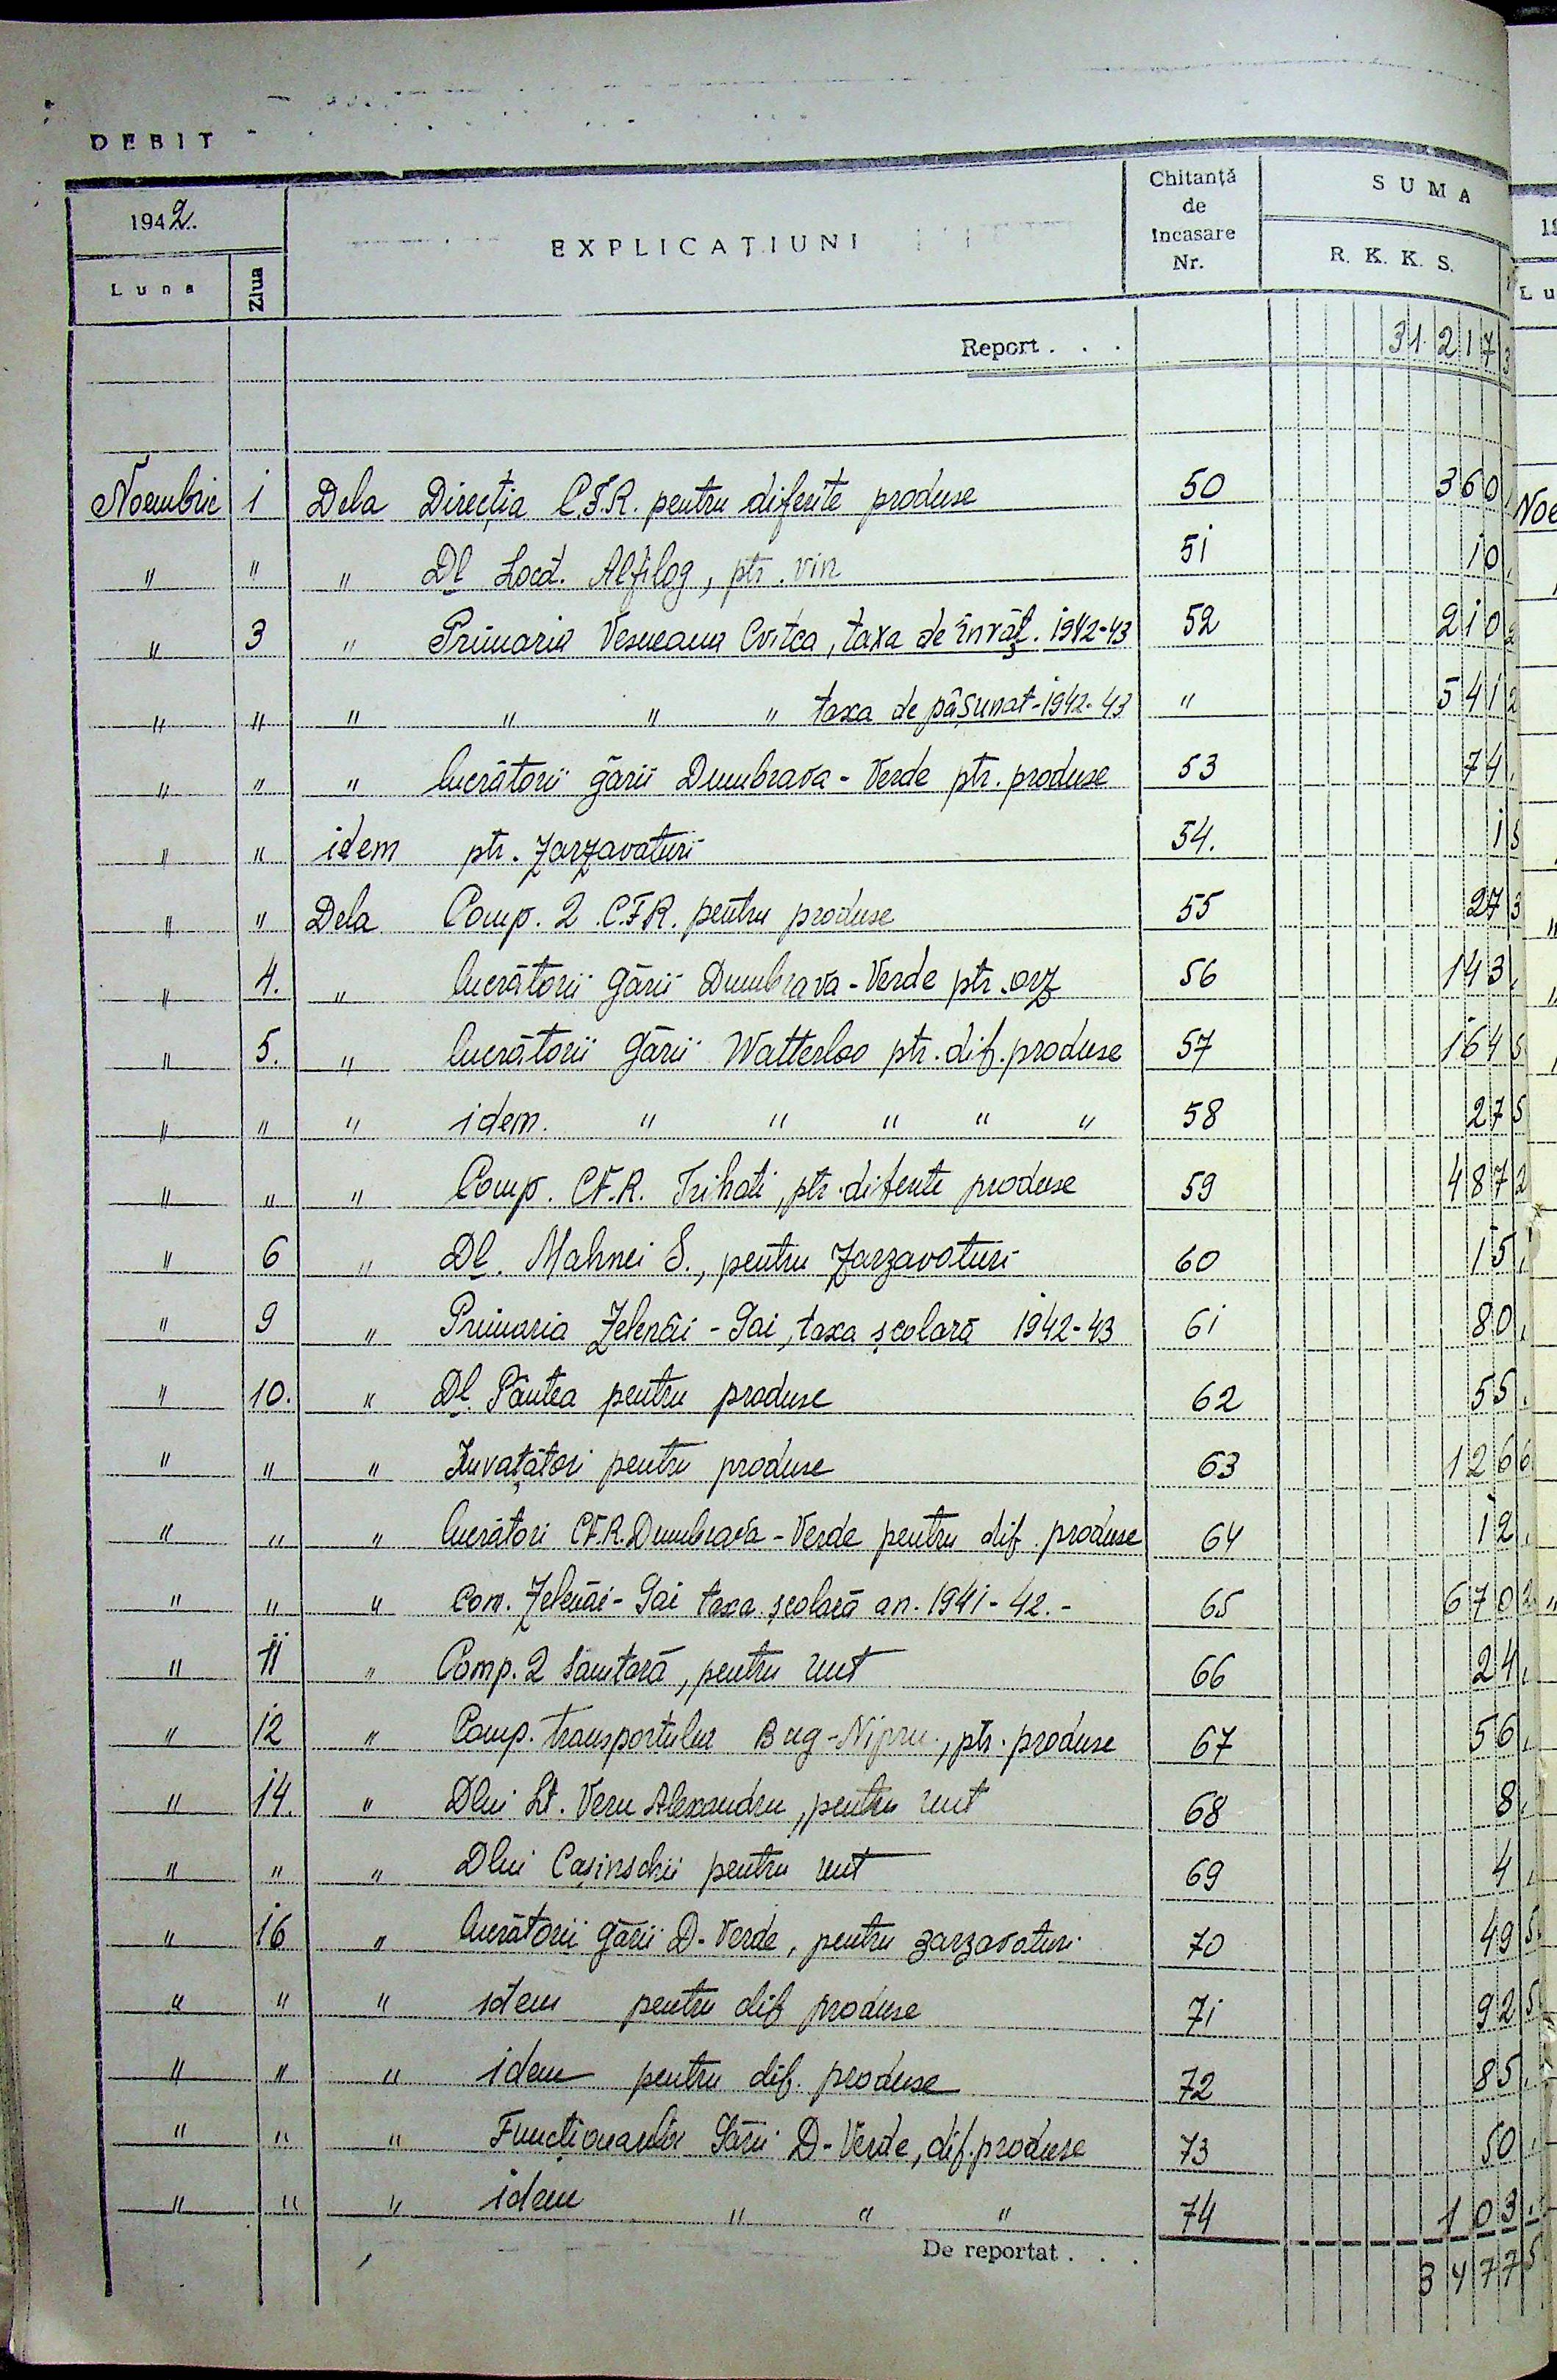 DEBIT
1942.
Luna
Ziua
EXPLICAȚIUNI
Chitanță
de
încasare
Nr.
SUMA
R. K. K. S.
Report . . . 31.217 3
Noembrie 1 Dela Direcția C.F.R. pentru diferite produse 50 360,
" " " Dl Locd. Alfilog, ptr. vin 51 10,
" 3 " Primaria Vesneana Cvitca, taxa de învăț. 1942-43 52 210 2
" " " " " " taxa de pășunat-1942-43 " 541 2
" " " lucrătorii gării Dumbrava-Verde ptr. produse 53 74,
" " idem ptr. Zarzavaturi 54. 1 5
" " Dela Comp. 2 C.F.R. pentru produse 55 27 3
" 4. " lucrătorii gării Dumbrava-Verde ptr. orz 56 143,
" 5. " lucrătorii gării Watterloo ptr. dif. produse 57 164 5
" " " idem. " " " " " 58 27 5
" " " Comp. C.F.R. Trihati, ptr. diferite produse 59 487 2
" 6 " Dl. Mahnei S., pentru Zarzavaturi 60 15,
" 9 " Primaria Zelenâi-Gai, taxa școlară 1942-43 61 80,
" 10. " Dl. Pântea pentru produse 62 55,
" " " Învățători pentru produse 63 126 6
" " " lucrători C.F.R. Dumbrava-Verde pentru dif. produse 64 12,
" " " Com. Zelenâi-Gai taxa școlară an. 1941-42.- 65 670 2
" 11 " Comp. 2 Sanitară, pentru unt 66 24,
" 12 " Comp. transportului Bug-Nipru, ptr. produse 67 56,
" 14. " Dlui Lt. Veru Alexandru, pentru unt 68 8,
" " " Dlui Cașinschii pentru unt 69 4,
" 16 " lucrătorii gării D-Verde, pentru zarzavaturi 70 49 5
" " " idem pentru dif produse 71 92 5
" " " idem pentru dif. produse 72 85,
" " " Funcționarilor Gării D-Verde, dif. produse 73 50,
" " " idem " " " 74 103,
De reportat . . . 3477 5
19
Lu
Noe